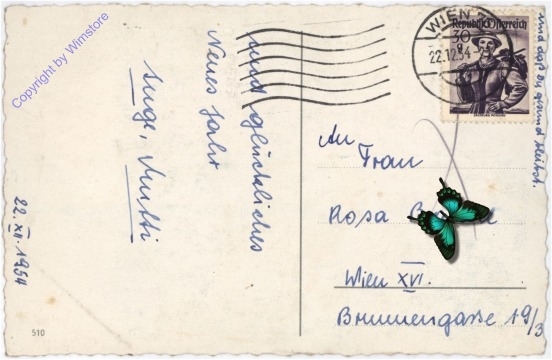 Copyright by Wimstore
und glückliches
Neues Jahr
Mutti
22. XII. 1954
510
WIEN
22.12.54
Republik Österreich
30 g
und daß du gesund bleibst.
An
Frau
Rosa
Wien XVI.
Brunnengasse 19/3